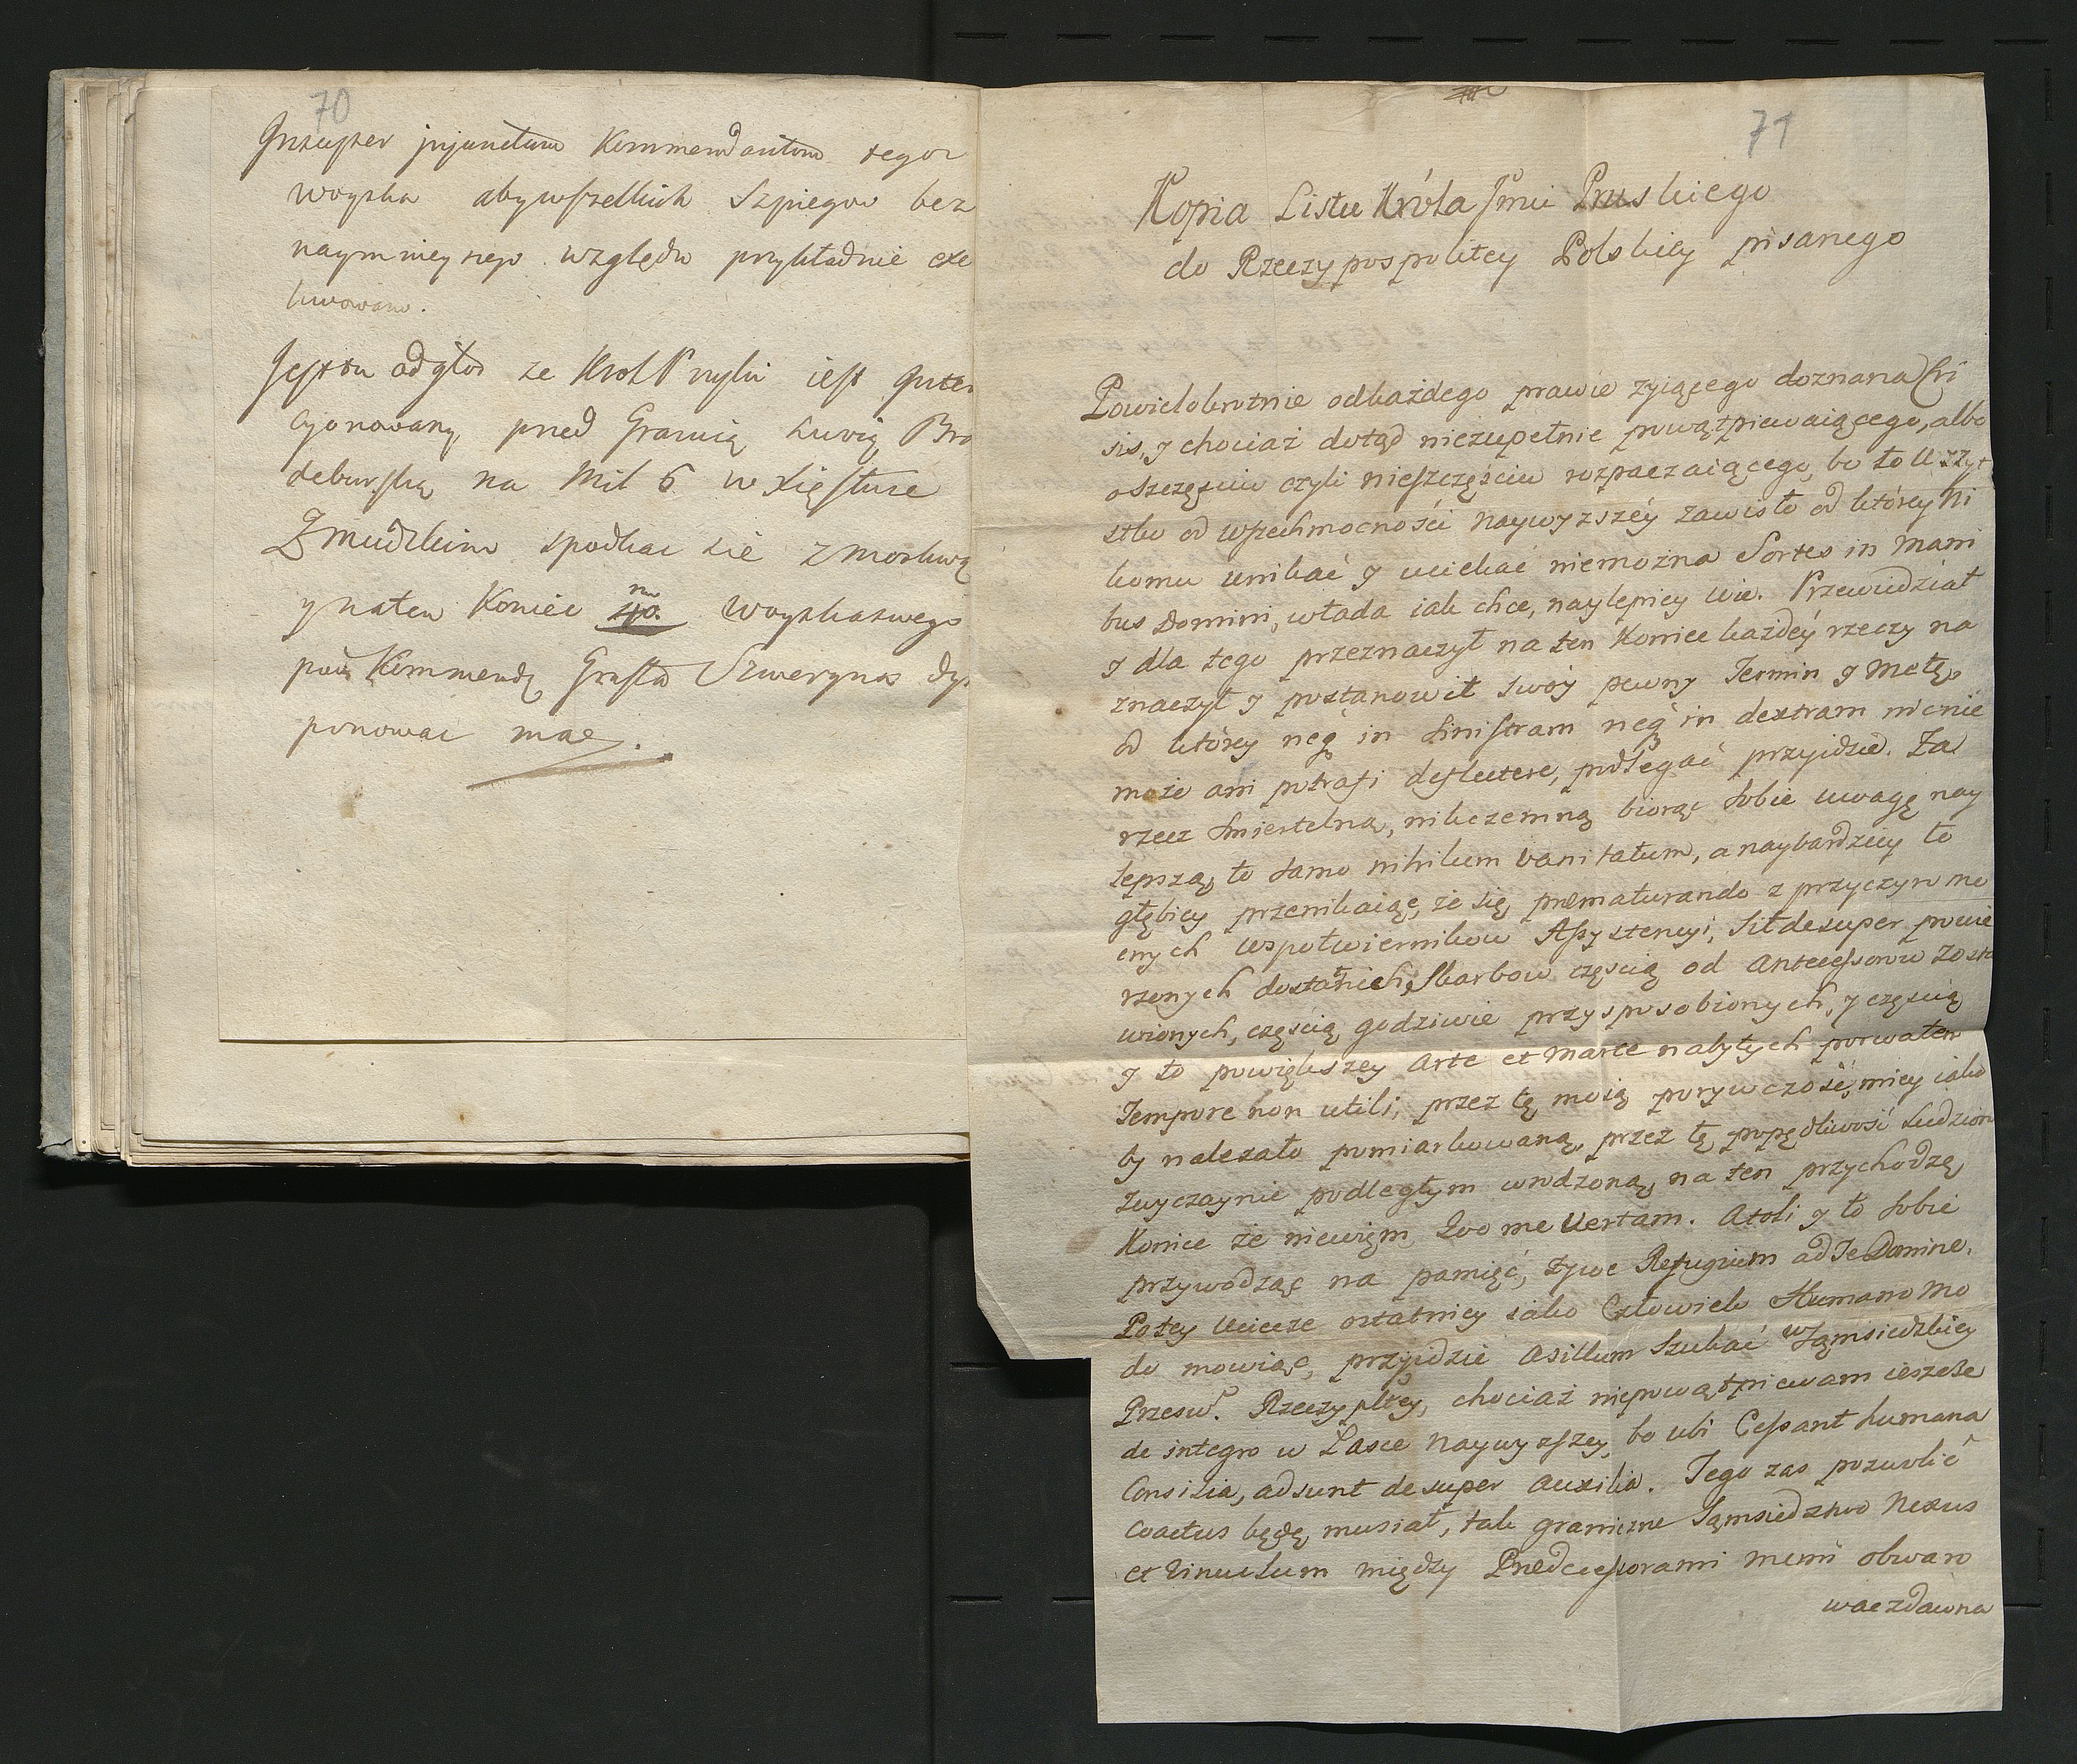 70
Insuper injunctum Kommendantom tegoz
woyska aby wszelkich Szpiegow bez
naymnieyszego względu przykładnie exe
kwowano.
Jest tu odgłos ze Krol Pruski iest Inten
cyonowany pned Granicą Kurią Bra
deburską na Mil 6 w Xięstwie
Zmudzkim spodkac sie z Moskwą
y na ten Koniec 40.m Woyska swego
pod Kommendą Graffa Szweryna dys
ponowac mae.
71
Kopia Listu Króla Jmci Pruskiego
do Rzeczypospolitey Polskiey pisanego
Powielokrotnie od każdego prawie zyiącego doznana Cri
sis, y chociaż dotąd niezupełnie powątpiewaiącego, albo
o Szczęściu czyli nieszczęściu rozpaczaiącego, bo to wszyt
stko od wszechmocności naywyzszéy zawisło od którey ni
komu unikać y uciekać niemożna Sortes in mani
bus Domini, włada iak chce, naylepiey wie. Przewidział
y dla tego przeznaczył na ten Koniec każdéy rzeczy na
znaczył y postanowił swóy pewny Termin y Metę,
od którey neq. in Sinistram neq. in dextram nic nie
może ani potrafi deflectere, podlegać przyidzie. Za
rzecz śmiertelną, nikczemną biorąc sobie uwagę nay
lepszą, to samo nihilum vanitatum, a naybardziey to
głębiey przenikaiąc, że się præmaturando z przyczyn mo
cnych wspołwiernikow Assystencyi, Sił desuper powie
rzonych dostatnich, Skarbow częscią od Antecessorow zosta
wionych, częscią godziwie przysposobionych, y częscią
y to powiększey Arte et Marte nabytych porwałem
Tempore non utili, przez tę moią porywczość, mniey iako
by nalezało pomiarkowaną, przez tę popędliwość Ludziom
zwyczaynie podległym wrodzoną, na ten przychodzę
Koniec że niewiem Quo me Vertam. Atoli y to sobie
przywodząc na pamięć, zywe Refugium ad Te Domine.
Po tey ucieczce ostatniey iako Człowiek Humano mo
do mowiąc, przyidzie Asillum Szukać w Sąmsiedzkiey
Przesw. Rzeczypltey, chociaż niepowątpiewam ieszcze
de integro w Łasce Naywyzszey, bo ubi Cessant humana
Consilia, adsunt desuper Auxilia. Tego zas pozwolić
coactus będę musiał, tak graniczne Sąmsiedztwo Nexus
et Vinculum między Prædecessorami memi obwaro
wae zdawna